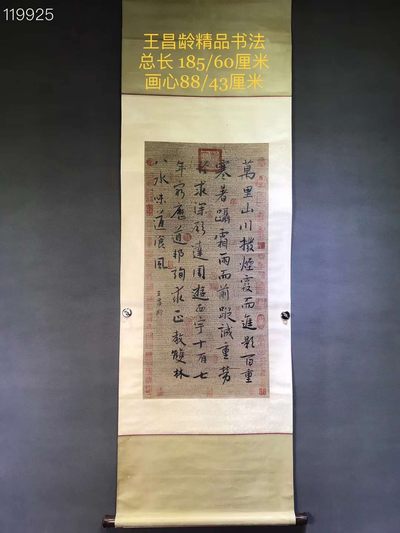 119925
王昌龄精品书法
总长 185/60厘米
画心88/43厘米
萬里山川撥煙霞而進影百重
寒暑躡霜雨而前蹤誠重勞
輕求深願達周遊西宇十有七
年窮歷道邦詢求正教雙林
八水味道飡風
王昌齡